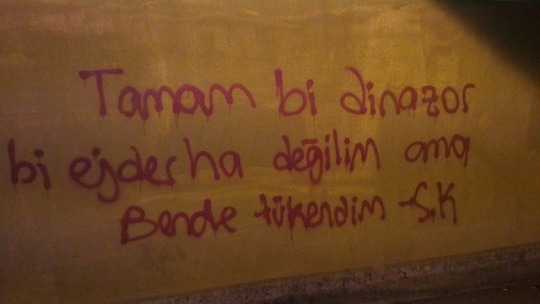 Tamam bi dinazor
bi ejderha değilim ama
Bende tükendim -S.K